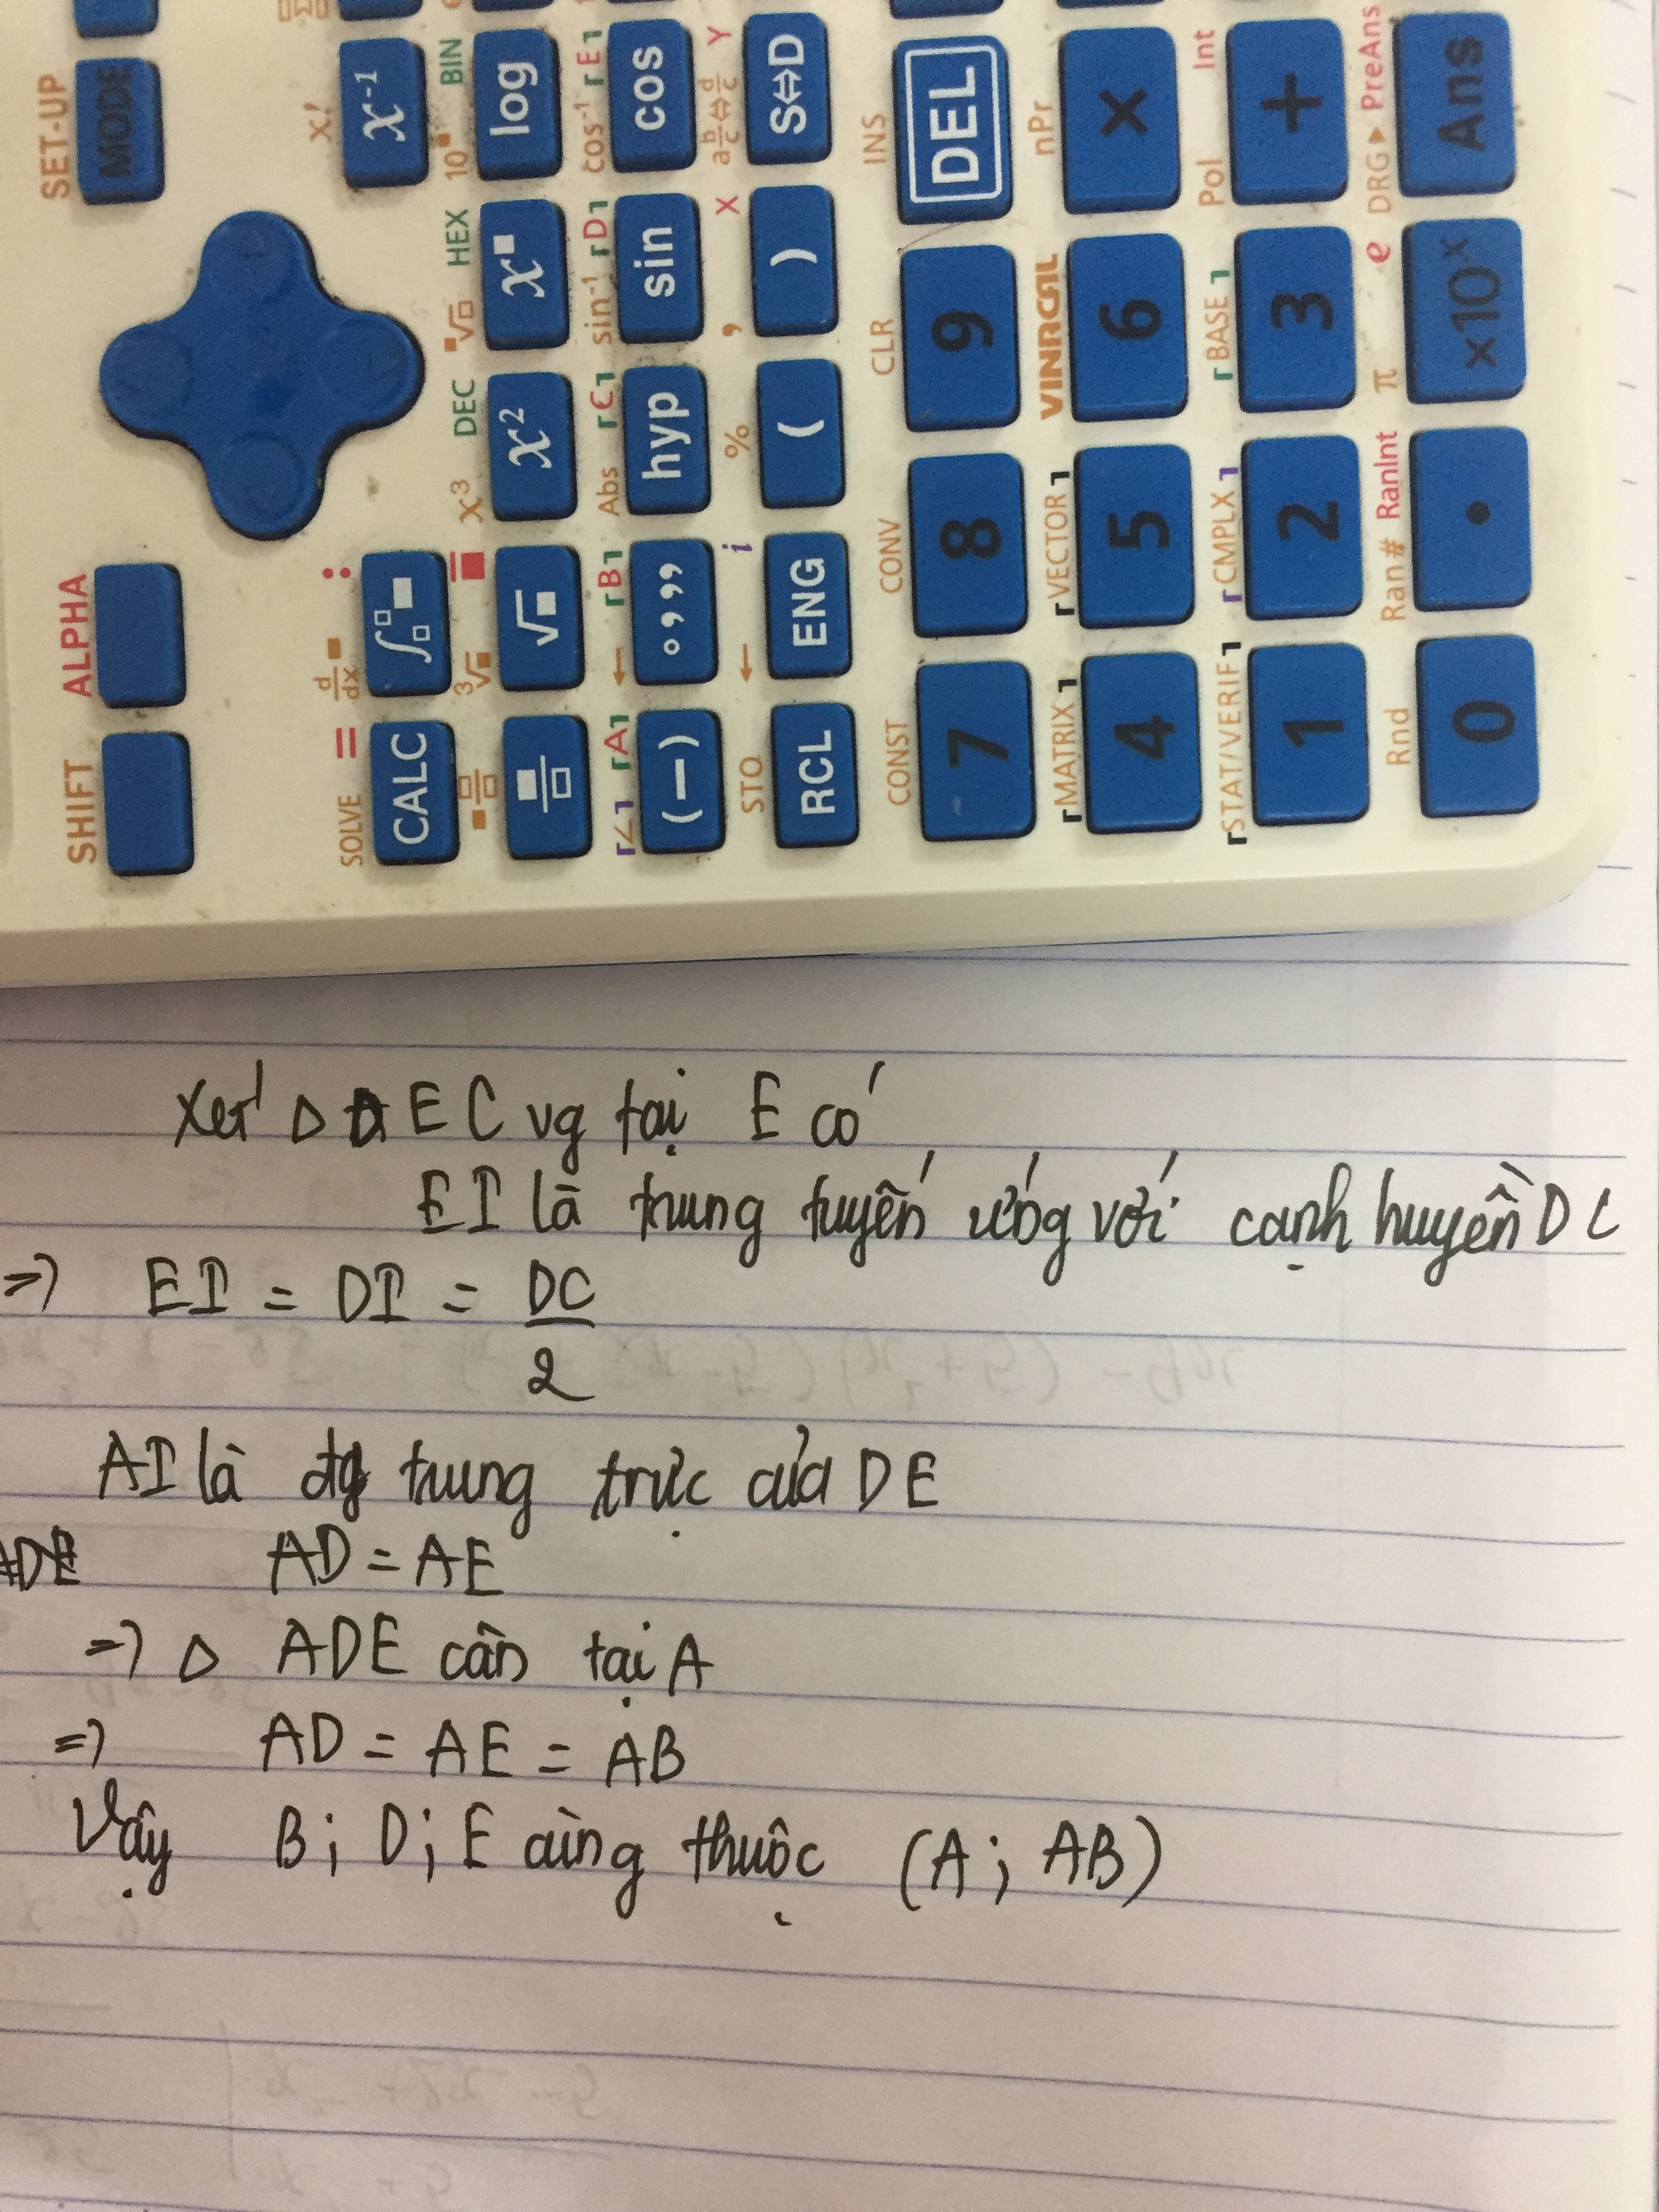 SET-UP
MODE
SHIFT
ALPHA
x!
x⁻¹
SOLVE =
CALC
d/dx :
∫
10■ BIN
log
HEX
x■
x³ DEC
x²
³√■
√■
cos⁻¹ ┌E┐
cos
sin⁻¹ ┌D┐
sin
Abs ┌C┐
hyp
← ┌B┐
° ’ ’’
┌∠┐ ┌A┐
(−)
a b/c⇔d/c Y
S⇔D
, X
)
%
(
← i
ENG
STO
RCL
INS
DEL
CLR
9
CONV
8
CONST
7
nPr
×
VINACAL
6
┌VECTOR┐
5
┌MATRIX┐
4
Pol Int
+
┌BASE┐
3
┌CMPLX┐
2
┌STAT/VERIF┐
1
DRG▶ PreAns
Ans
π e
×10ˣ
Ran# RanInt
•
Rnd
0
Xét Δ DEC vg tại E có
EI là trung tuyến ứng với cạnh huyền DC
=> EI = DI = DC/2
AI là đg trung trực của DE
AD = AE
=> Δ ADE cân tại A
=> AD = AE = AB
Vậy B; D; E cùng thuộc (A; AB)